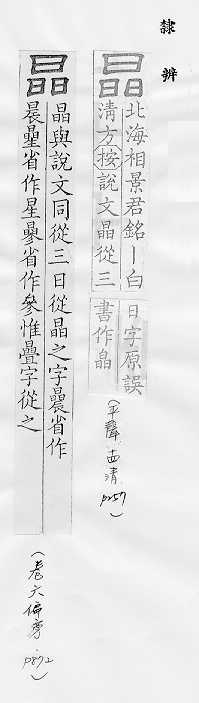 隸辨
晶
北海相景君銘丨白
清方按說文晶從三
日字原誤
書作皛
(平聲 清 p257)
晶
晶與說文同從三日從晶之字曟省作
晨曐省作星曑省作參惟疊字從之
(卷六偏旁.p872)